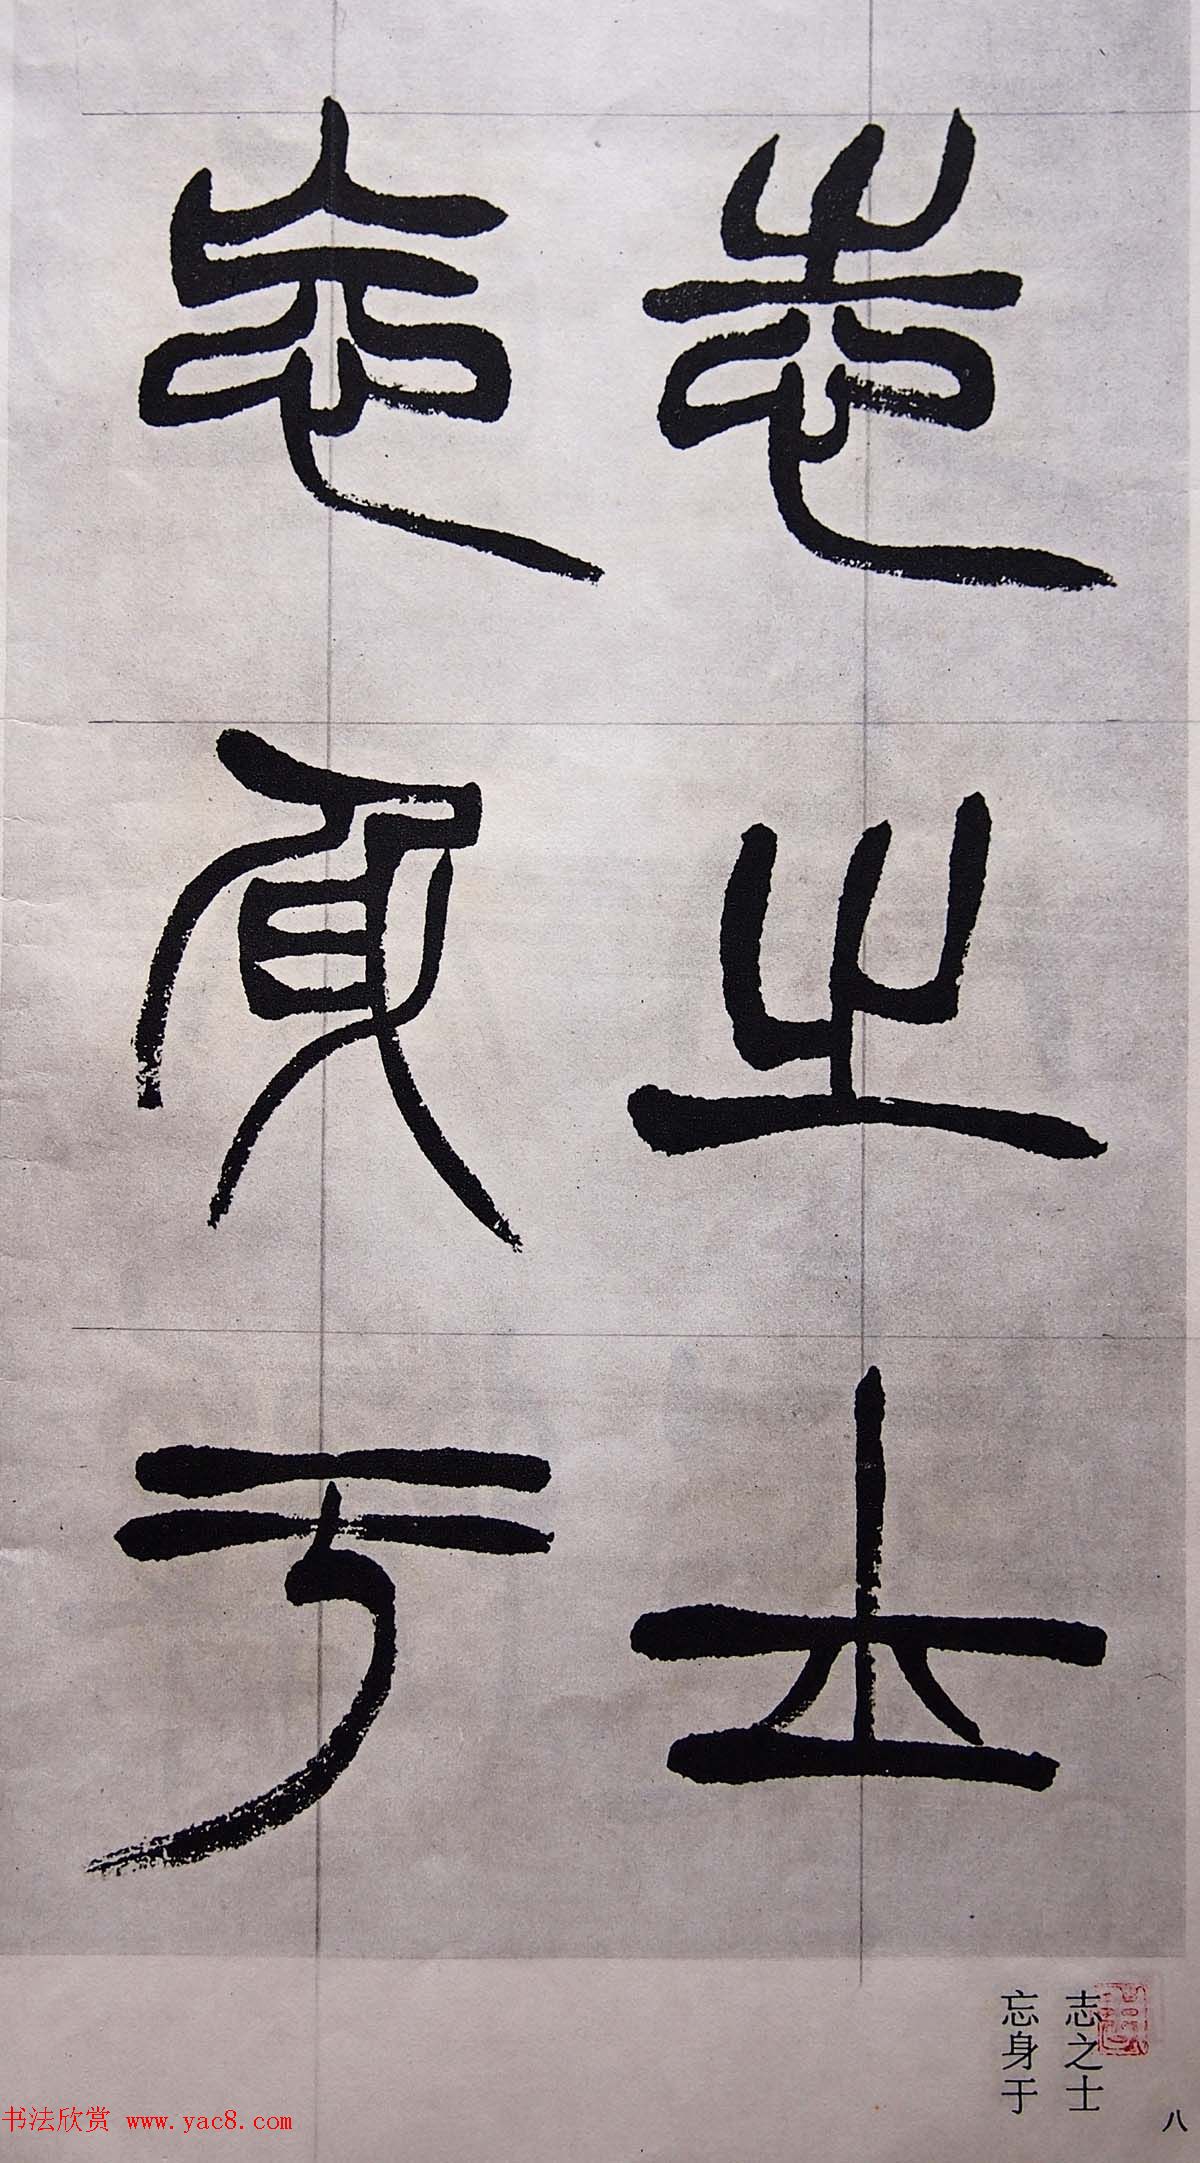 志之士
忘身于
志之士
忘身于
八
书法欣赏 www.yac8.com